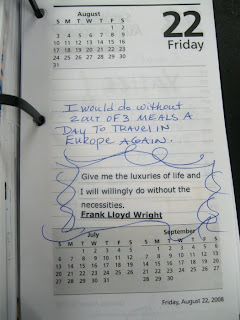 August
S M T W T F S
1 2
3 4 5 6 7 8 9
10 11 12 13 14 15 16
17 18 19 20 21 22 23
24 25 26 27 28 29 30
31
22
Friday
I would do without
2 out of 3 MEALS A
DAY TO TRAVEL IN
EUROPE AGAIN.
Give me the luxuries of life and
I will willingly do without the
necessities.
Frank Lloyd Wright
July September
S M T W T F S S M T W T F S
1 2 3 4 5 1 2 3 4 5 6
6 7 8 9 10 11 12 7 8 9 10 11 12 13
13 14 15 16 17 18 19 14 15 16 17 18 19 20
20 21 22 23 24 25 26 21 22 23 24 25 26 27
27 28 29 30 31 28 29 30
Friday, August 22, 2008